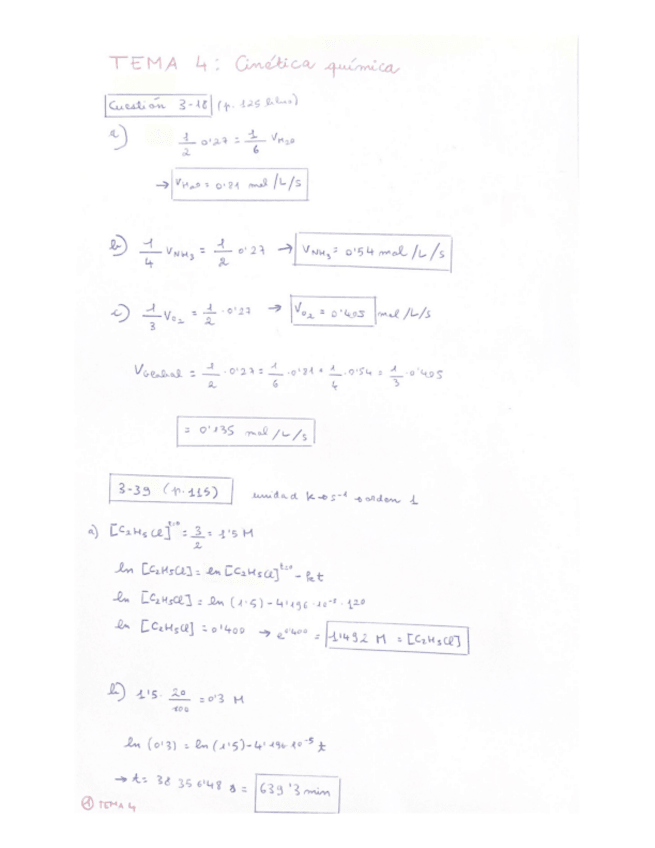 TEMA 4: Cinética química
Cuestión 3-18 (p. 125 libro)
a) 1/2 0'27 = 1/6 V_H2O
→ V_H2O = 0'81 mol/L/s
b) 1/4 V_NH3 = 1/2 0'27 → V_NH3 = 0'54 mol/L/s
c) 1/3 V_O2 = 1/2 · 0'27 → V_O2 = 0'405 mol/L/s
V_global = 1/2 · 0'27 = 1/6 · 0'81 = 1/4 · 0'54 = 1/3 · 0'405
= 0'135 mol/L/s
3-39 (p. 115) unidad k → s⁻¹ → orden 1
a) [C2H5Cl]^t=0 = 3/2 = 1'5 M
ln [C2H5Cl] = ln [C2H5Cl]^t=0 - kt
ln [C2H5Cl] = ln (1'5) - 4'196 · 10⁻⁵ · 120
ln [C2H5Cl] = 0'400 → e^0'400 = 1'492 M = [C2H5Cl]
b) 1'5 · 20/100 = 0'3 M
ln (0'3) = ln (1'5) - 4'196 · 10⁻⁵ t
→ t = 38 356'48 s = 639'3 min
1 TEMA 4